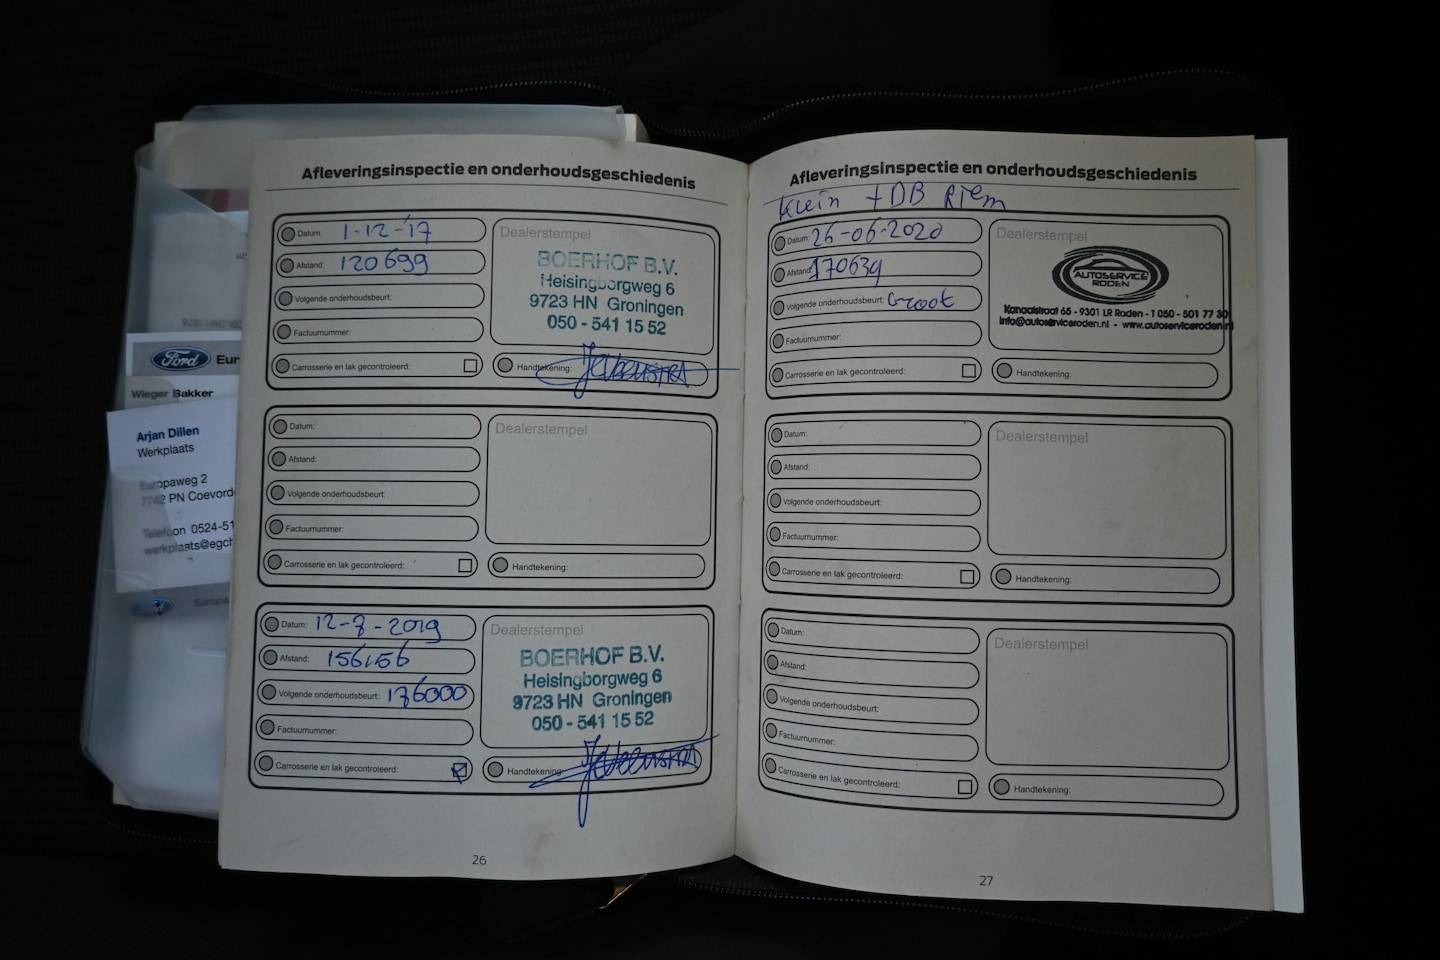 Ford Eur
Wieger Bakker
Arjan Dillen
Werkplaats
Europaweg 2
7742 PN Coevord
Telefoon 0524-51
werkplaats@egch
Europa
Afleveringsinspectie en onderhoudsgeschiedenis
Datum: 1-12-'17
Afstand: 120699
Volgende onderhoudsbeurt:
Factuurnummer:
Carrosserie en lak gecontroleerd:
Dealerstempel
BOERHOF B.V.
Helsingborgweg 6
9723 HN Groningen
050 - 541 15 52
Handtekening:
Datum:
Afstand:
Volgende onderhoudsbeurt:
Factuurnummer:
Carrosserie en lak gecontroleerd:
Dealerstempel
Handtekening:
Datum: 12-8-2019
Afstand: 156156
Volgende onderhoudsbeurt: 176000
Factuurnummer:
Carrosserie en lak gecontroleerd:
Dealerstempel
BOERHOF B.V.
Helsingborgweg 6
9723 HN Groningen
050 - 541 15 52
Handtekening:
26
Afleveringsinspectie en onderhoudsgeschiedenis
Klein + DB Riem
Datum: 26-06-2020
Afstand: 170639
Volgende onderhoudsbeurt: Groot
Factuurnummer:
Carrosserie en lak gecontroleerd:
Dealerstempel
AUTOSERVICE
RODEN
Kanaalstraat 65 - 9301 LR Roden - T 050 - 501 77 30
info@autoserviceroden.nl - www.autoserviceroden.nl
Handtekening:
Datum:
Afstand:
Volgende onderhoudsbeurt:
Factuurnummer:
Carrosserie en lak gecontroleerd:
Dealerstempel
Handtekening:
Datum:
Afstand:
Volgende onderhoudsbeurt:
Factuurnummer:
Carrosserie en lak gecontroleerd:
Dealerstempel
Handtekening:
27